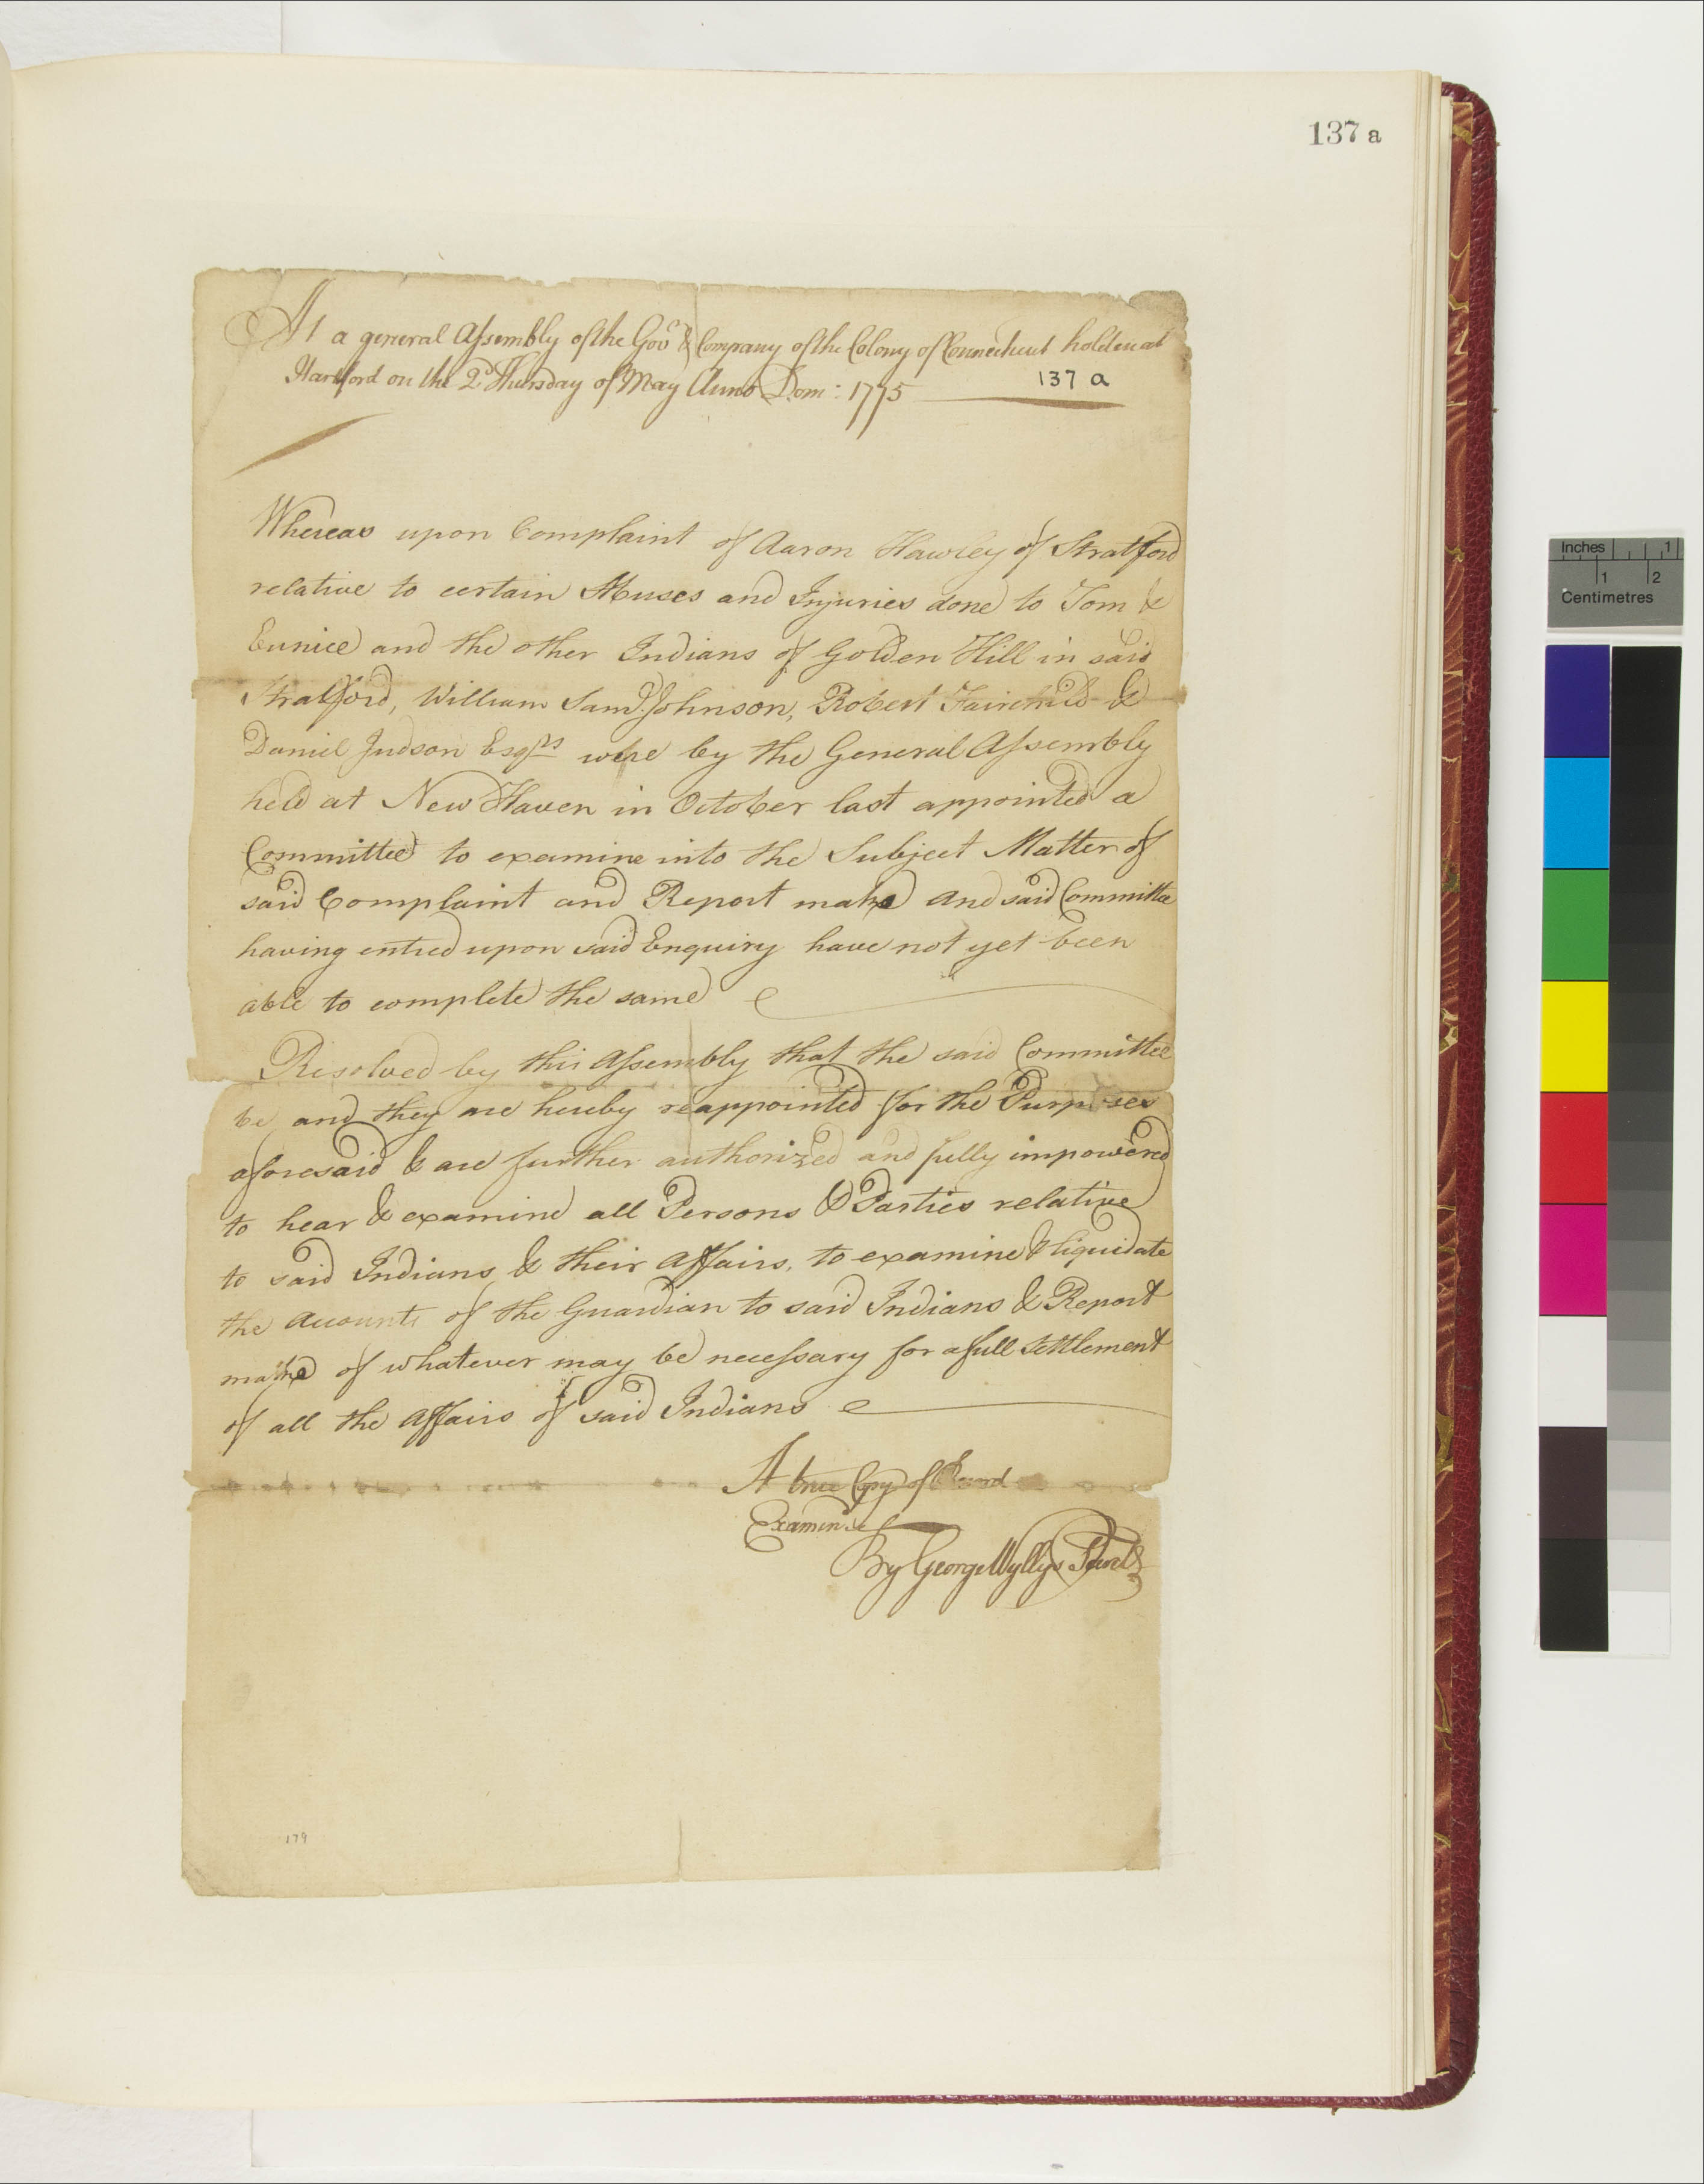 137 a
At a general Assembly of the Govr & Company of the Colony of Connecticut holden at
Hartford on the 2d Thursday of May Anno Dom: 1775
137 a
Whereas upon Complaint of Aaron Hawley of Stratford
relative to certain Abuses and Injuries done to Tom &
Eunice and the other Indians of Golden Hill in said
Stratford, William Saml. Johnson, Robert Fairchild &
Daniel Judson Esqrs were by the General Assembly
held at New Haven in October last appointed a
Committee to examine into the Subject Matter of
said Complaint and Report make and said Committee
having entred upon said Enquiry have not yet been
able to complete the same
Resolved by this Assembly that the said Committee
be and they are hereby reappointed for the Purposes
aforesaid & are further authorized and fully impowered
to hear & examine all Persons & Parties relative
to said Indians & their Affairs, to examine & liquidate
the Accounts of the Guardian to said Indians & Report
make of whatever may be necessary for a full Settlement
of all the Affairs of said Indians
A true Copy of Record
Examind
By George Wyllys Secret
179
Inches 1
1 2
Centimetres